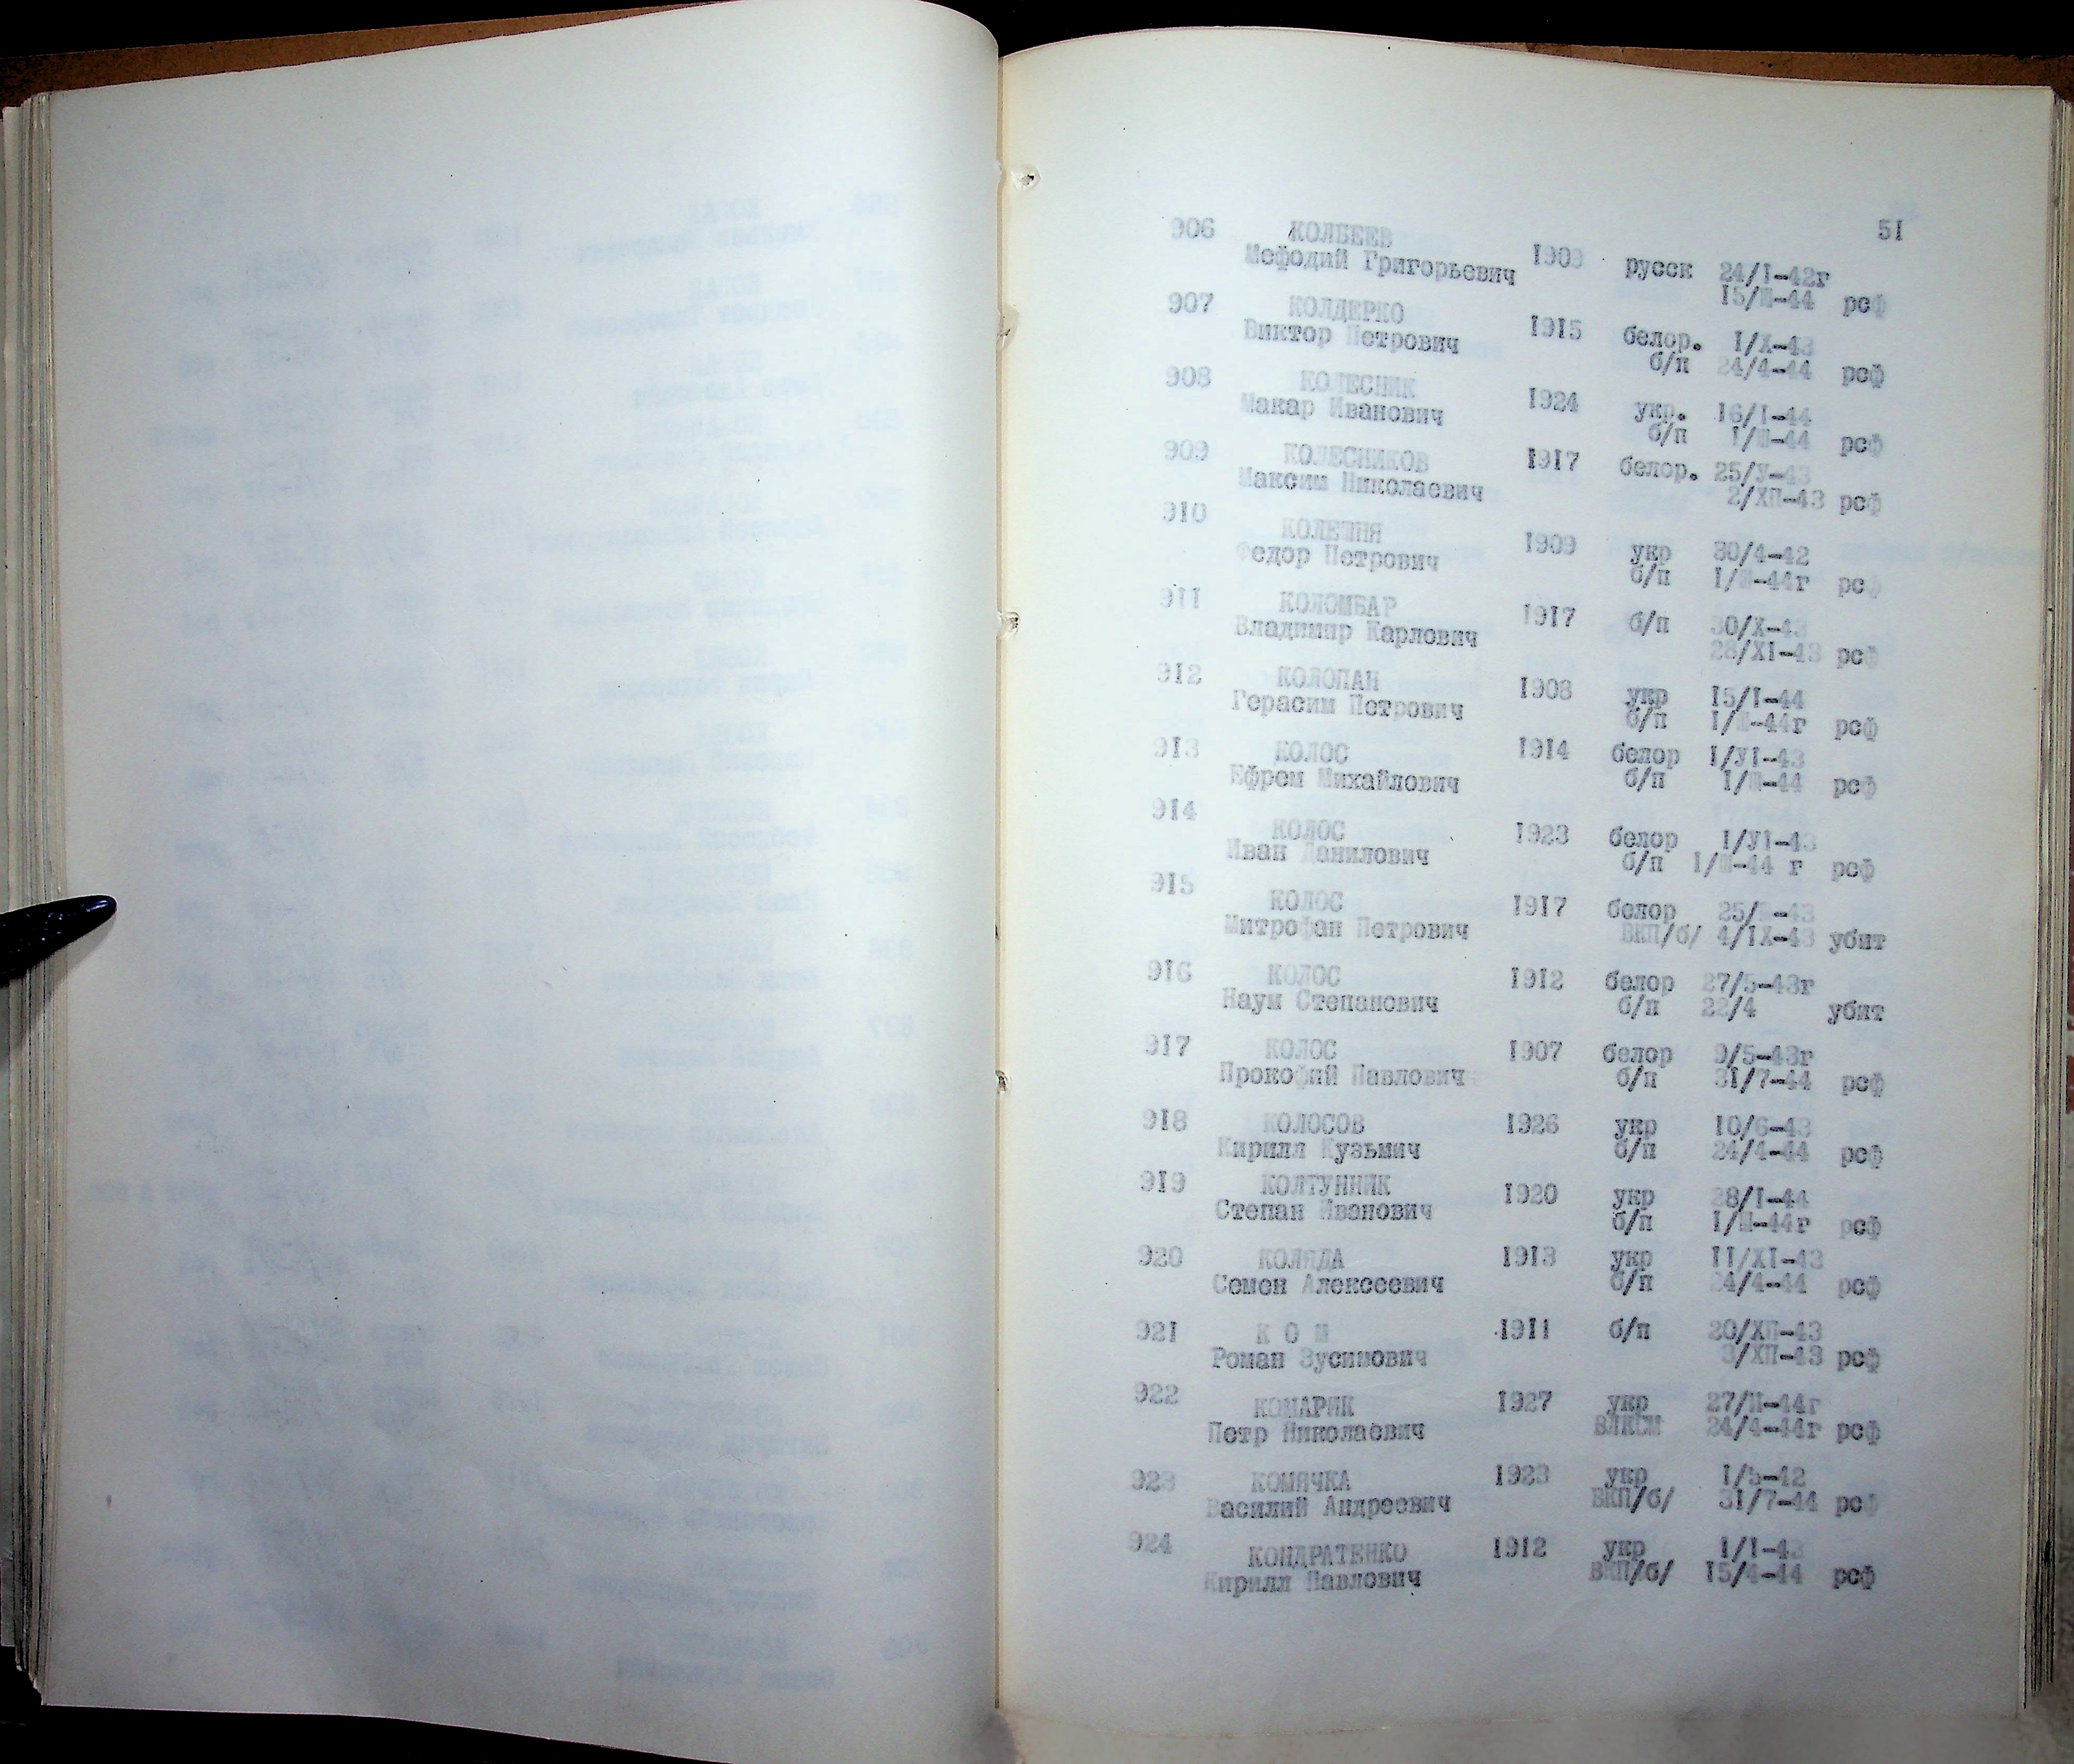 51
906 КОЛБЕЕВ
Мефодий Григорьевич 1909 русск 24/I-42г
15/Ш-44 рсф
907 КОЛДЕРКО
Виктор Петрович 1915 белор. I/X-43
б/п 24/4-44 рсф
908 КОЛЕСНИК
Макар Иванович 1924 укр. 16/I-44
б/п I/Ш-44 рсф
909 КОЛЕСНИКОВ
Максим Николаевич 1917 белор. 25/У-43
2/ХП-43 рсф
910 КОЛЕШНЯ
Федор Петрович 1909 укр 30/4-42
б/п I/Ш-44г рсф
911 КОЛОМБАР
Владимир Карлович 1917 б/п 30/X-43
28/XI-43 рсф
912 КОЛОПАН
Герасим Петрович 1908 укр 15/I-44
б/п I/Ш-44г рсф
913 КОЛОС 1914 белор I/УI-43
Ефрем Михайлович б/п I/Ш-44 рсф
914 КОЛОС 1923 белор I/УI-43
Иван Данилович б/п I/Ш-44 г рсф
915 КОЛОС 1917 белор
Митрофан Петрович ВКП/б/ 4/IX-43 убит
916 КОЛОС 1912 белор 27/5-43г
Наум Степанович б/п 22/4 убит
917 КОЛОС 1907 белор 9/5-43г
Прокофий Павлович б/п 31/7-44 рсф
918 КОЛОСОВ 1926 укр 10/6-43
Кирилл Кузьмич б/п 24/4-44 рсф
919 КОЛТУННИК 1920 укр 28/I-44
Степан Иванович б/п I/Ш-44г рсф
920 КОЛЯДА 1913 укр 11/XI-43
Семен Алексеевич б/п 24/4-44 рсф
921 К О М 1911 б/п 20/ХП-43
Роман Зусимович 3/ХП-43 рсф
922 КОМАРИК 1927 укр 27/П-44г
Петр Николаевич ВЛКСМ 24/4-44г рсф
923 КОМЯЧКА 1923 укр I/5-42
Василий Андреевич ВКП/б/ 31/7-44 рсф
924 КОНДРАТЕНКО 1912 укр I/I-43
Кирилл Павлович ВКП/б/ 15/4-44 рсф